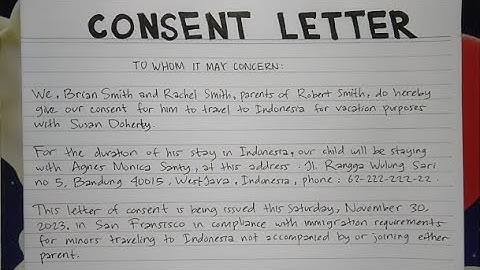 CONSENT LETTER
TO WHOM IT MAY CONCERN:
We, Brian Smith and Rachel Smith, parents of Robert Smith, do hereby
give our consent for him to travel to Indonesia for vacation purposes
with Susan Doherty.
For the duration of his stay in Indonesia, our child will be staying
with Agnes Monica Santy, at this address : Jl. Rangga Wulung Sari
no 5, Bandung 40015, West Java, Indonesia, phone : 62-222-222-22.
This letter of consent is being issued this Saturday, November 30,
2023, in San Fransisco in compliance with immigration requirements
for minors traveling to Indonesia not accompanied by or joining either
parent.